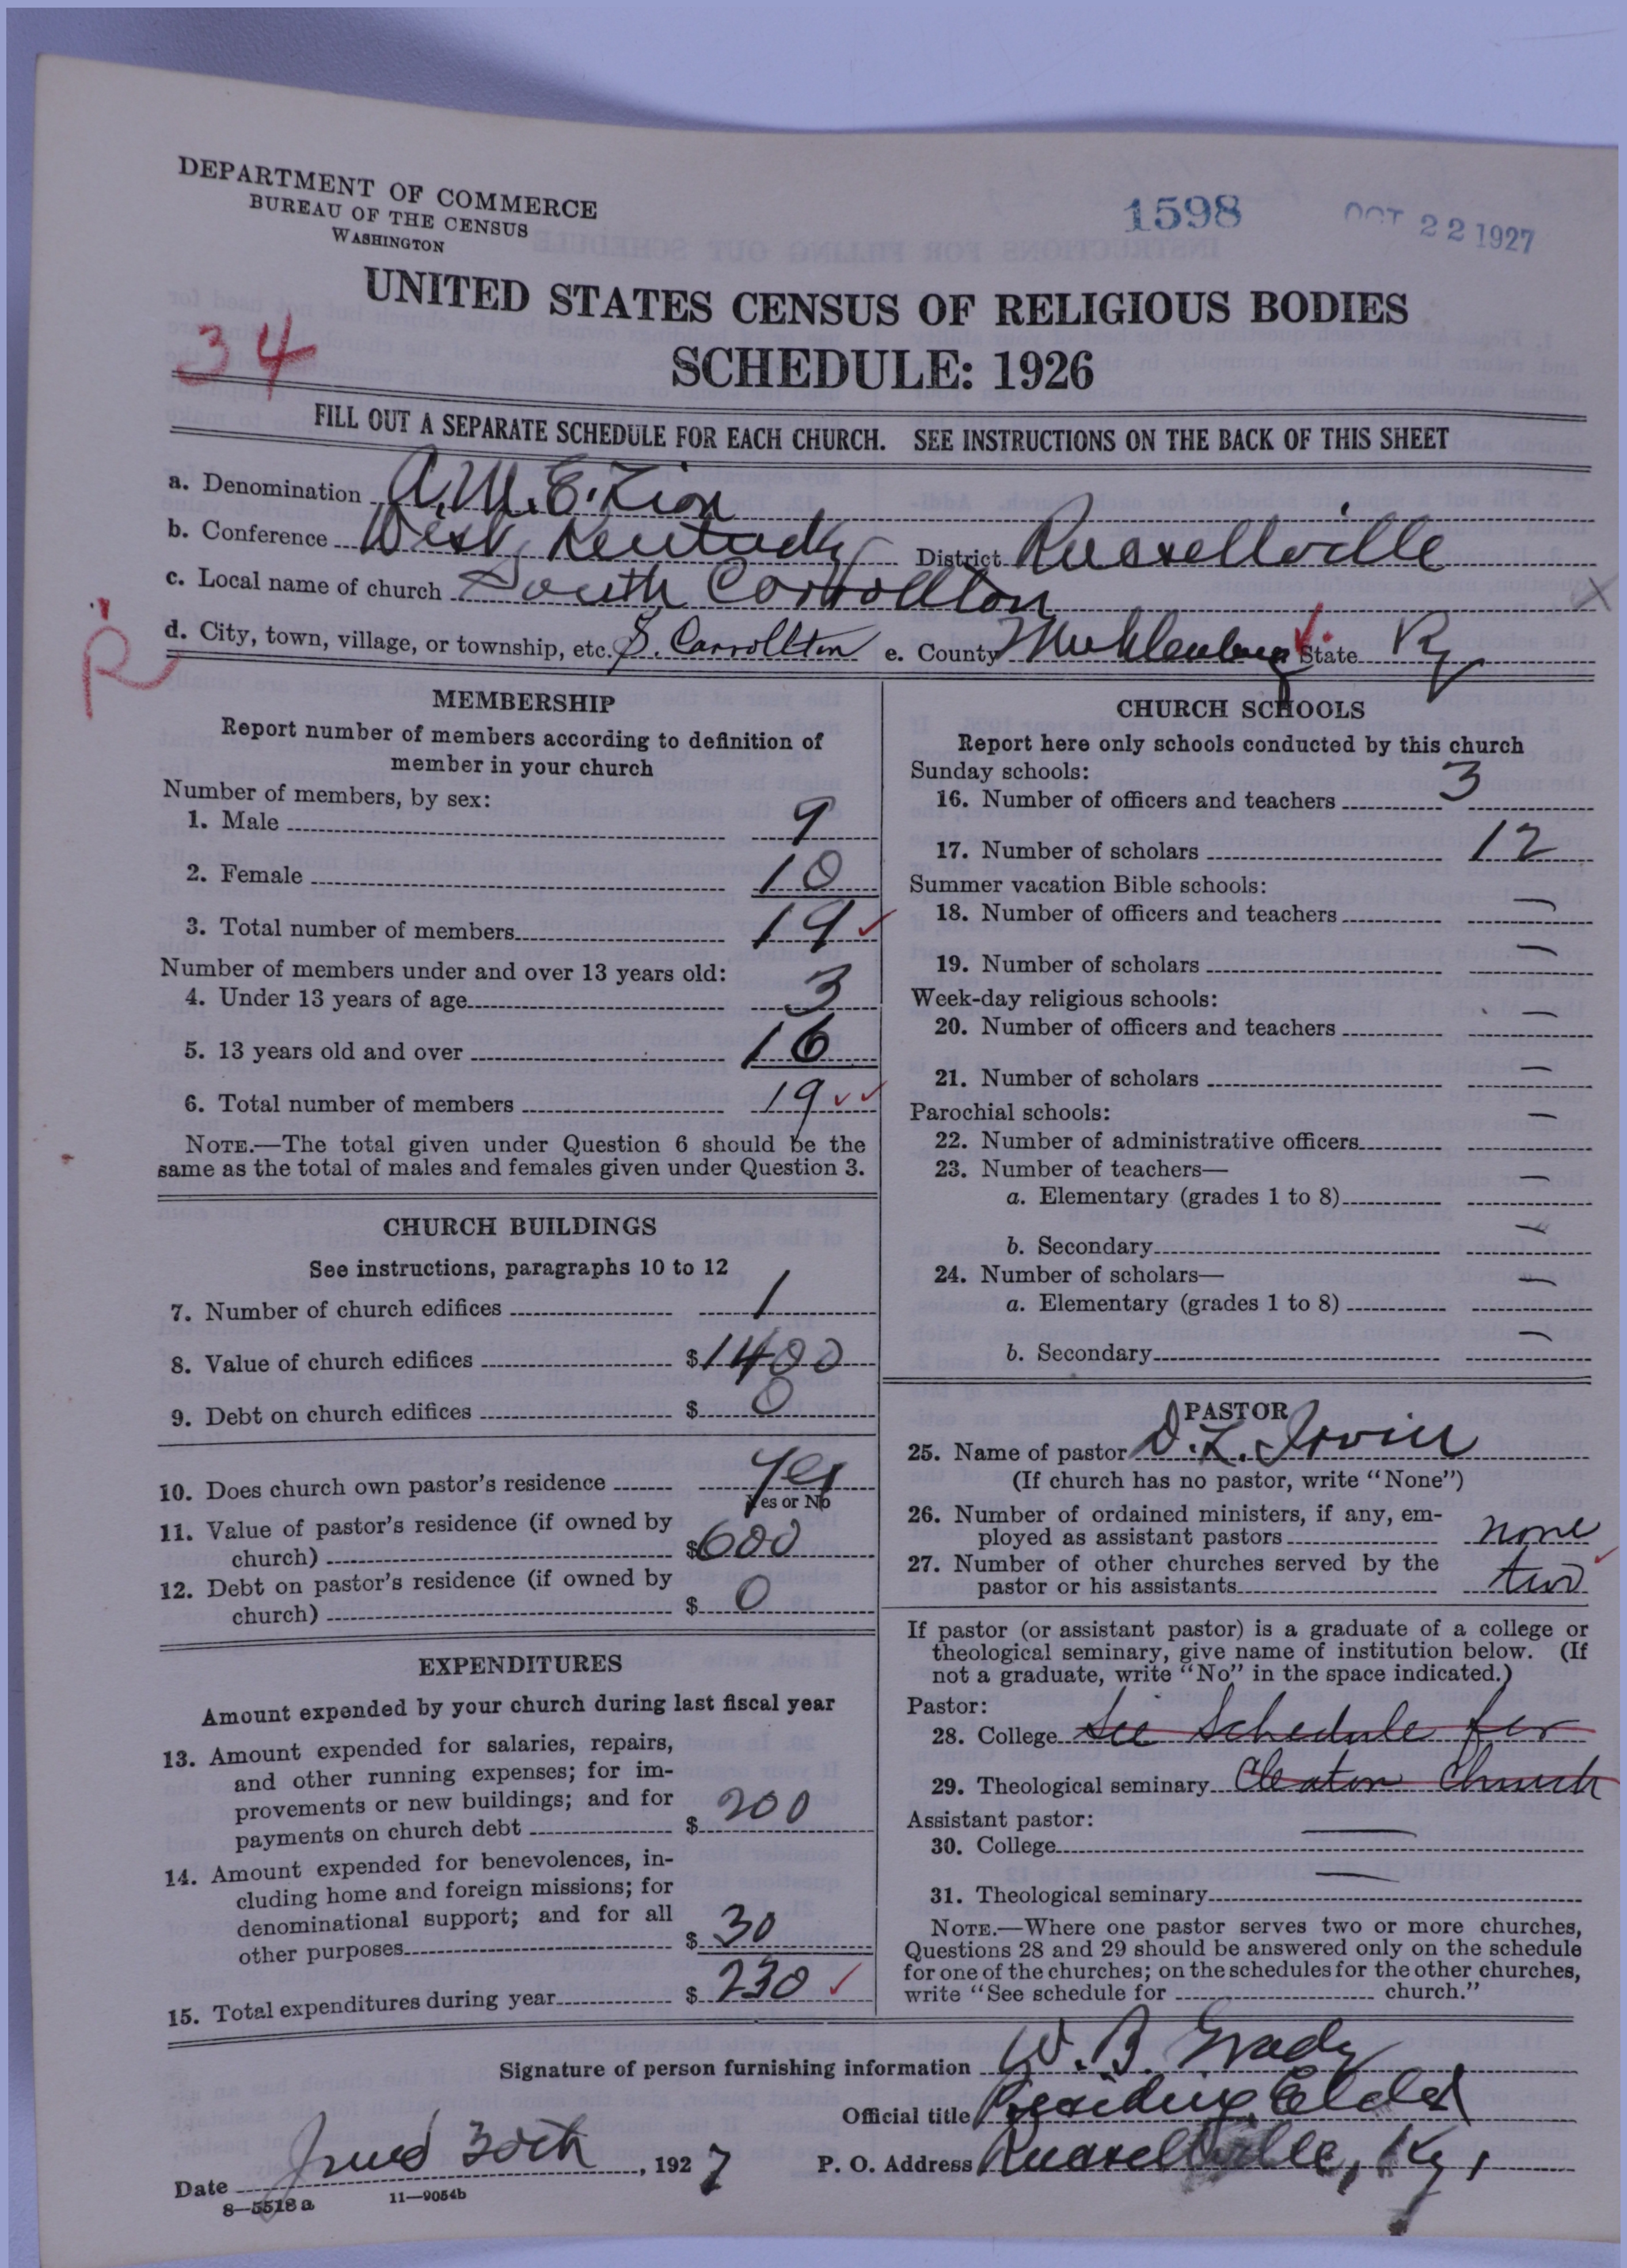 DEPARTMENT OF COMMERCE
BUREAU OF THE CENSUS
WASHINGTON
1598
OCT 22 1927
UNITED STATES CENSUS OF RELIGIOUS BODIES
34
SCHEDULE: 1926
FILL OUT A SEPARATE SCHEDULE FOR EACH CHURCH. SEE INSTRUCTIONS ON THE BACK OF THIS SHEET
a. Denomination A.M.E. Zion
b. Conference West Kentucky District Russellville
c. Local name of church South Carrollton
d. City, town, village, or township, etc. S. Carrollton e. County Muhlenburg State Ky
R
MEMBERSHIP
Report number of members according to definition of
member in your church
Number of members, by sex:
1. Male 9
2. Female 10
3. Total number of members 19
Number of members under and over 13 years old:
4. Under 13 years of age 3
5. 13 years old and over 16
6. Total number of members 19
NOTE.—The total given under Question 6 should be the
same as the total of males and females given under Question 3.
CHURCH BUILDINGS
See instructions, paragraphs 10 to 12
7. Number of church edifices 1
8. Value of church edifices $1400
9. Debt on church edifices $ 0
10. Does church own pastor's residence Yes
Yes or No
11. Value of pastor's residence (if owned by
church) $600
12. Debt on pastor's residence (if owned by
church) $ 0
EXPENDITURES
Amount expended by your church during last fiscal year
13. Amount expended for salaries, repairs,
and other running expenses; for im-
provements or new buildings; and for
payments on church debt $ 200
14. Amount expended for benevolences, in-
cluding home and foreign missions; for
denominational support; and for all
other purposes $ 30
15. Total expenditures during year $ 230
CHURCH SCHOOLS
Report here only schools conducted by this church
Sunday schools:
16. Number of officers and teachers 3
17. Number of scholars 12
Summer vacation Bible schools:
18. Number of officers and teachers —
19. Number of scholars —
Week-day religious schools:
20. Number of officers and teachers —
21. Number of scholars —
Parochial schools:
22. Number of administrative officers —
23. Number of teachers—
a. Elementary (grades 1 to 8)
b. Secondary —
24. Number of scholars—
a. Elementary (grades 1 to 8) —
b. Secondary —
PASTOR
25. Name of pastor D. L. Irvin
(If church has no pastor, write "None")
26. Number of ordained ministers, if any, em-
ployed as assistant pastors none
27. Number of other churches served by the
pastor or his assistants two
If pastor (or assistant pastor) is a graduate of a college or
theological seminary, give name of institution below. (If
not a graduate, write "No" in the space indicated.)
Pastor:
28. College See Schedule for
29. Theological seminary Cleaton Church
Assistant pastor:
30. College —
31. Theological seminary —
NOTE.—Where one pastor serves two or more churches,
Questions 28 and 29 should be answered only on the schedule
for one of the churches; on the schedules for the other churches,
write "See schedule for church."
Signature of person furnishing information W. B. Grady
Official title Presiding Elder
Date June 30th, 1927 P. O. Address Russellville, Ky,
8—5518 a 11—9054b